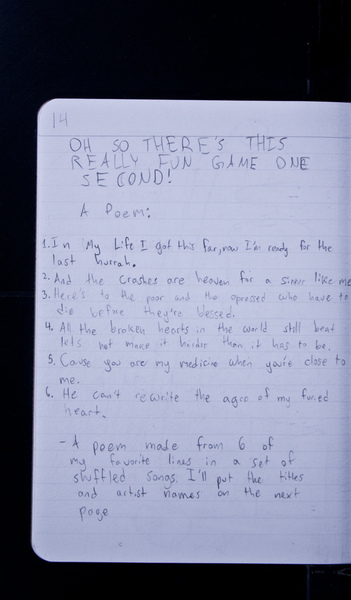 14
OH SO THERE'S THIS
REALLY FUN GAME ONE
SECOND!
A Poem:
1. In My Life I got this far, now I'm ready for the
last hurrah.
2. And the crashes are heaven for a sinner like me
3. Here's to the poor and the opressed who have to
die before they're blessed.
4. All the broken hearts in the world still beat
lets not make it harder than it has to be.
5. Cause you are my medicine when you're close to
me.
6. He can't rewrite the of my
heart.
- A poem made from 6 of
my favorite lines in a set of
shuffled songs. I'll put the titles
and artist names on the next
page